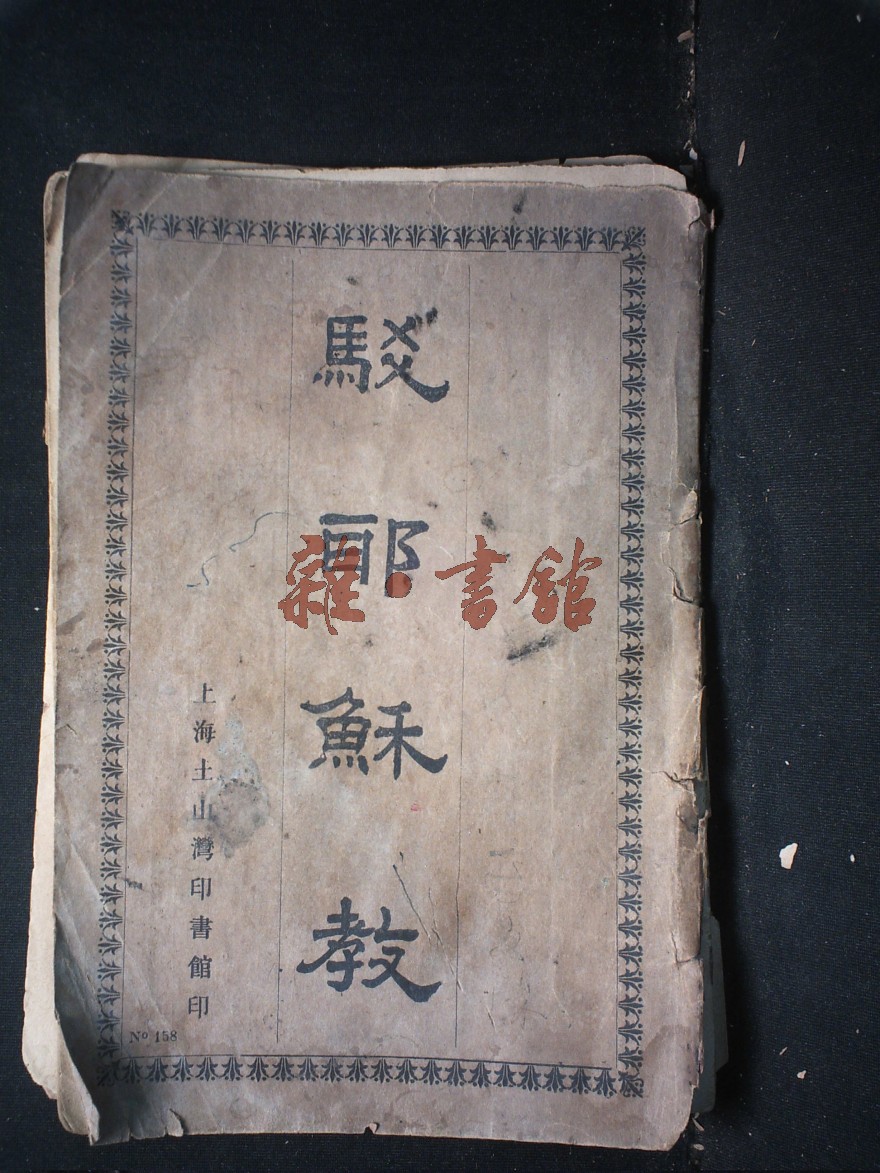 駁耶穌教
上海土山灣印書館印
Nº 158
雜·書館